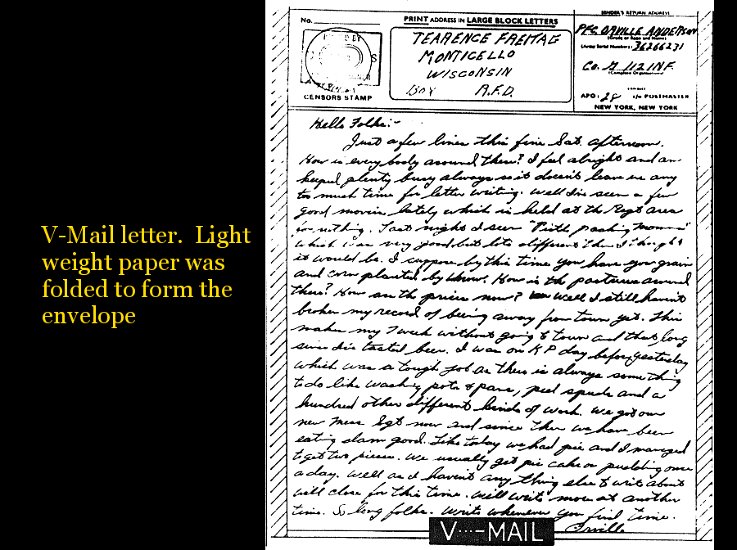 V-Mail letter. Light
weight paper was
folded to form the
envelope
No.
PRINT ADDRESS IN LARGE BLOCK LETTERS
SENDER'S RETURN ADDRESS
CENSORS STAMP
TEARENCE FREITAG
MONTICELLO
WISCONSIN
Box R.F.D.
PFC ORVILLE ANDERSON
36266271
Co. G 112 INF.
APO: 28 c/o POSTMASTER
NEW YORK, NEW YORK
Hello Folks:-
Just a few lines this fine Sat. afternoon.
How is everybody around there? I feel alright and am
keeped plenty busy always so it doesn't leave me any
too much time for letter writing. Well I've seen a few
good movies lately which is held at the Regt area
for nothing. Last night I seen "Pistol packing Momma"
which was very good but lots different than I thought
it would be. I suppose by this time you have your grain
and corn planted by know. How is the pastures around
there? How are the prices now? Well I still havent
broken my record of being away from town yet. This
makes my 7 week without going to town and that long
since I've tasted beer. I was on K P day before yesterday
which was a tough job as there is always something
to do like washing pots & pans, peel spuds and a
hundred other different kinds of work. We got our
new Mess Sgt now and since then we have been
eating damn good. Like today we had pie and I managed
to get two pieces. We usually get pie cake or pudding once
a day. Well as I havent any thing else to write about
will close for this time. Will write more at another
time. So long folks. Write whenever you find time.
Orville
V···-MAIL